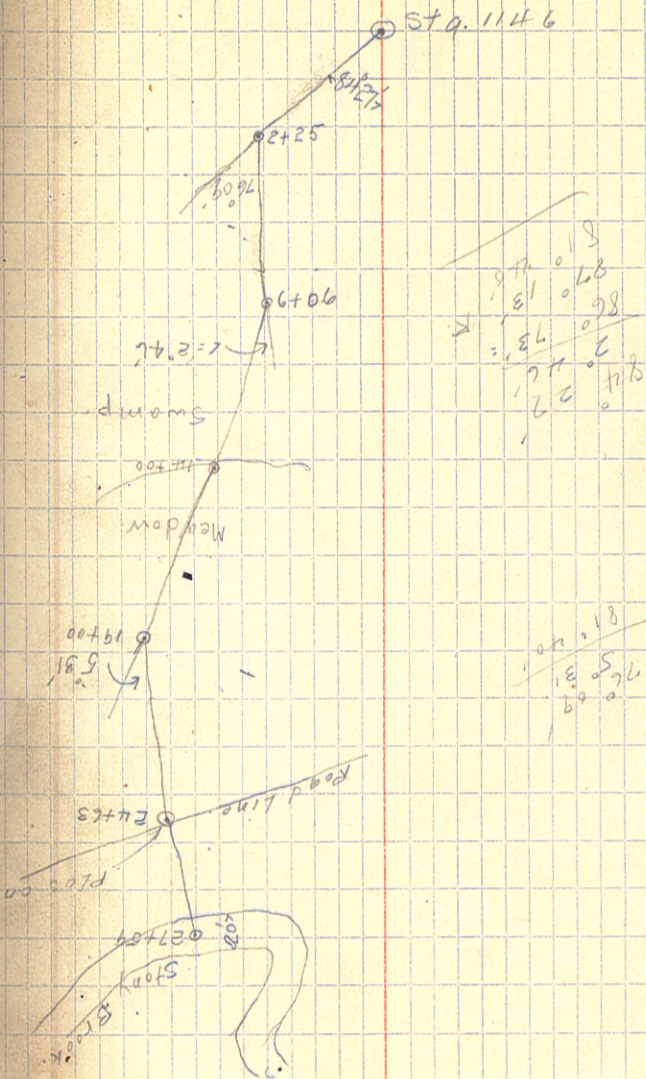 Sta. 1146
84°27'
2+25
76°09'
9+06
∠=2°46'
Swamp
14+00
Meadow
19+00
5°31'
24+63
Road Line
Plos on
27+59
Stony
Brook
84° 27'
2° 46'
86° 73' =
87° 13'
81° 4
76° 09'
5° 31'
81° 40'